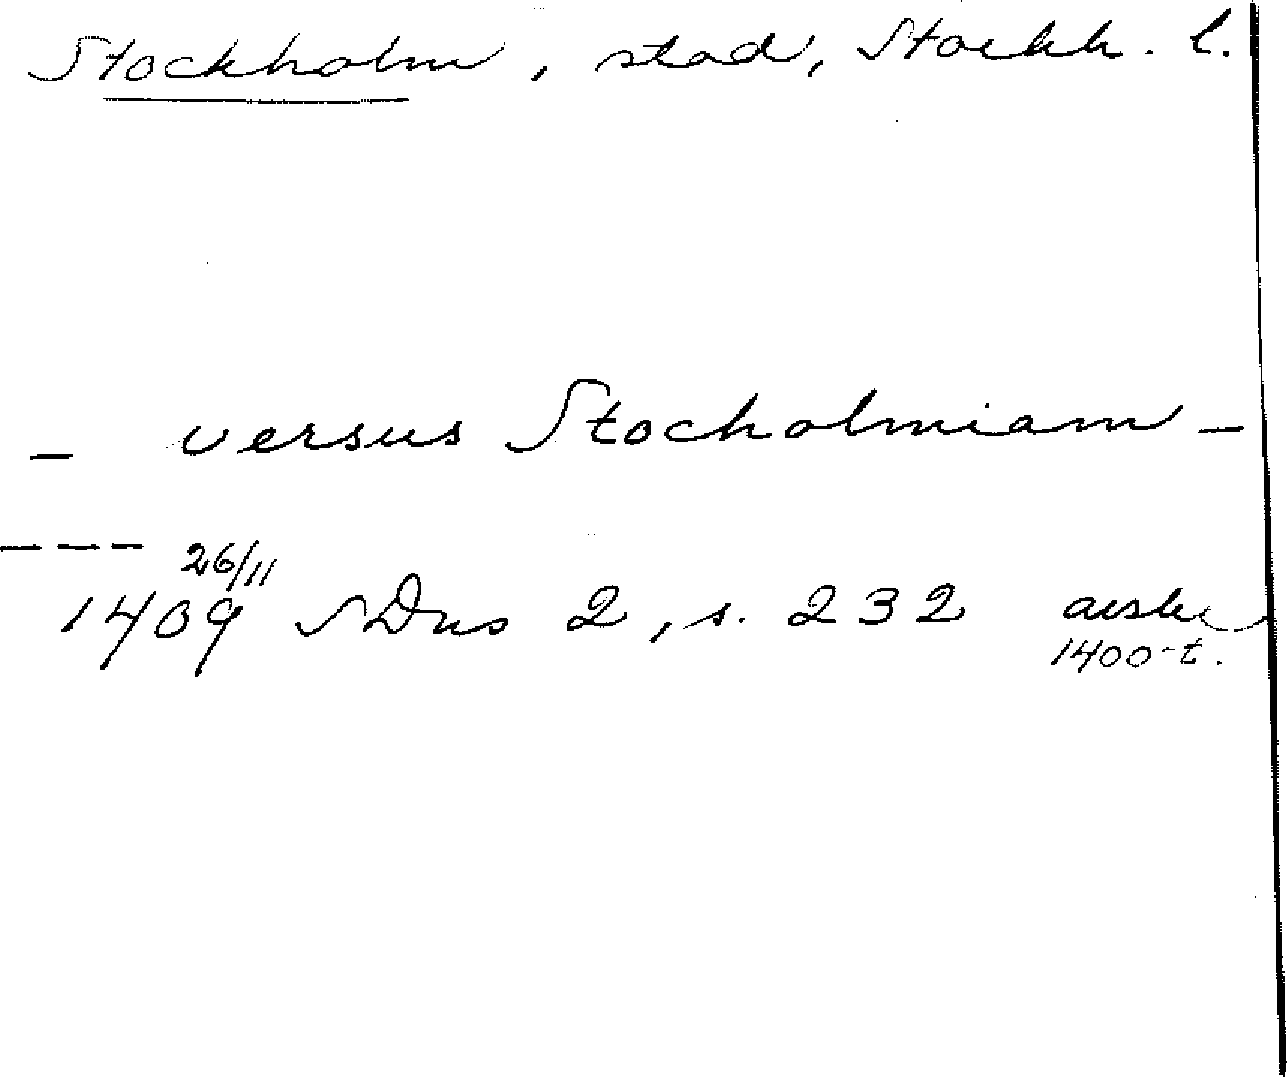 Stockholm, stad, Stockh. l.
– versus Stocholmiam –
– – – 26/11
1409 SDns 2, s. 232 avskr
1400-t.